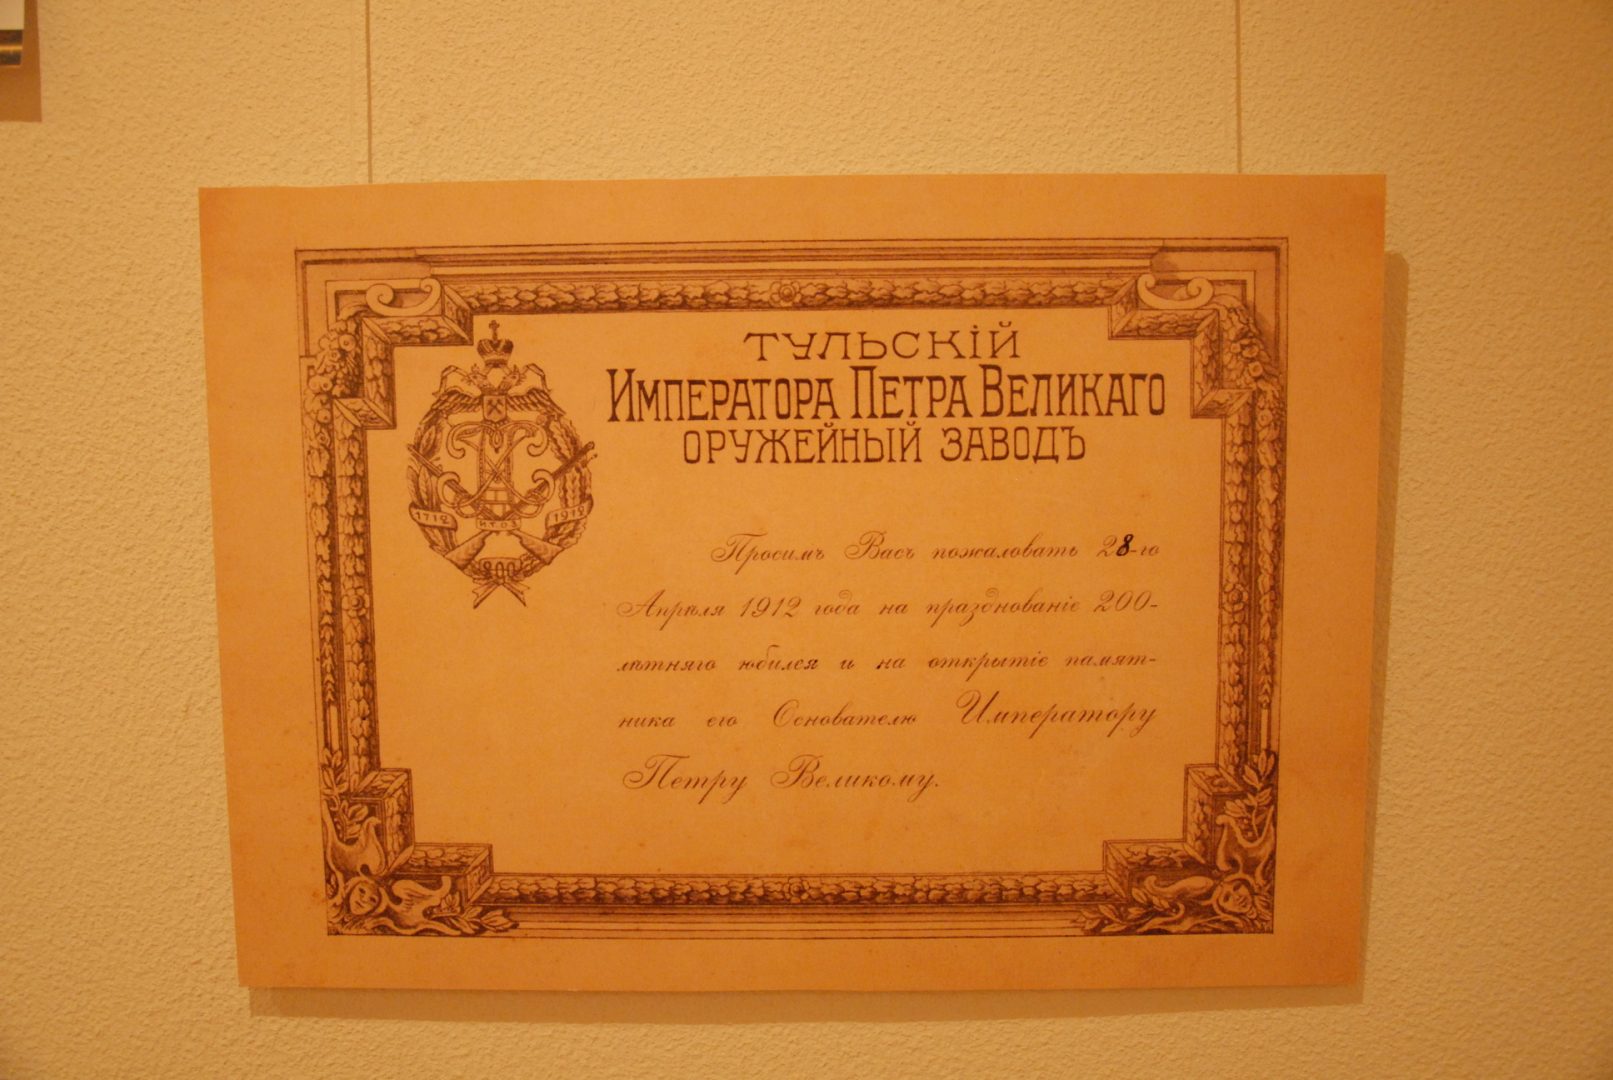 ТУЛЬСКІЙ
ИМПЕРАТОРА ПЕТРА ВЕЛИКАГО
ОРУЖЕЙНЫЙ ЗАВОДЪ
1712
И.Т.О.З.
1912
200
Просимъ Васъ пожаловать 28-го
Апрѣля 1912 года на празднованіе 200-
лѣтняго юбилея и на открытіе памят-
ника его Основателю Императору
Петру Великому.